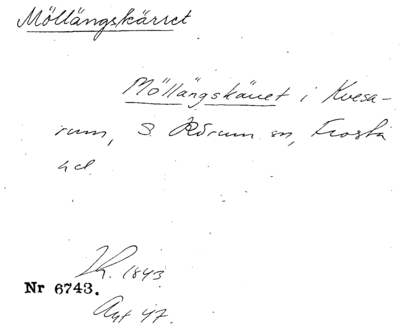 Möllängskärret
Möllängskärret i Kvesa-
rum, S Rörum sn, Frosta
hd.
Lk. 1843
Nr 6743.
Akt 47.